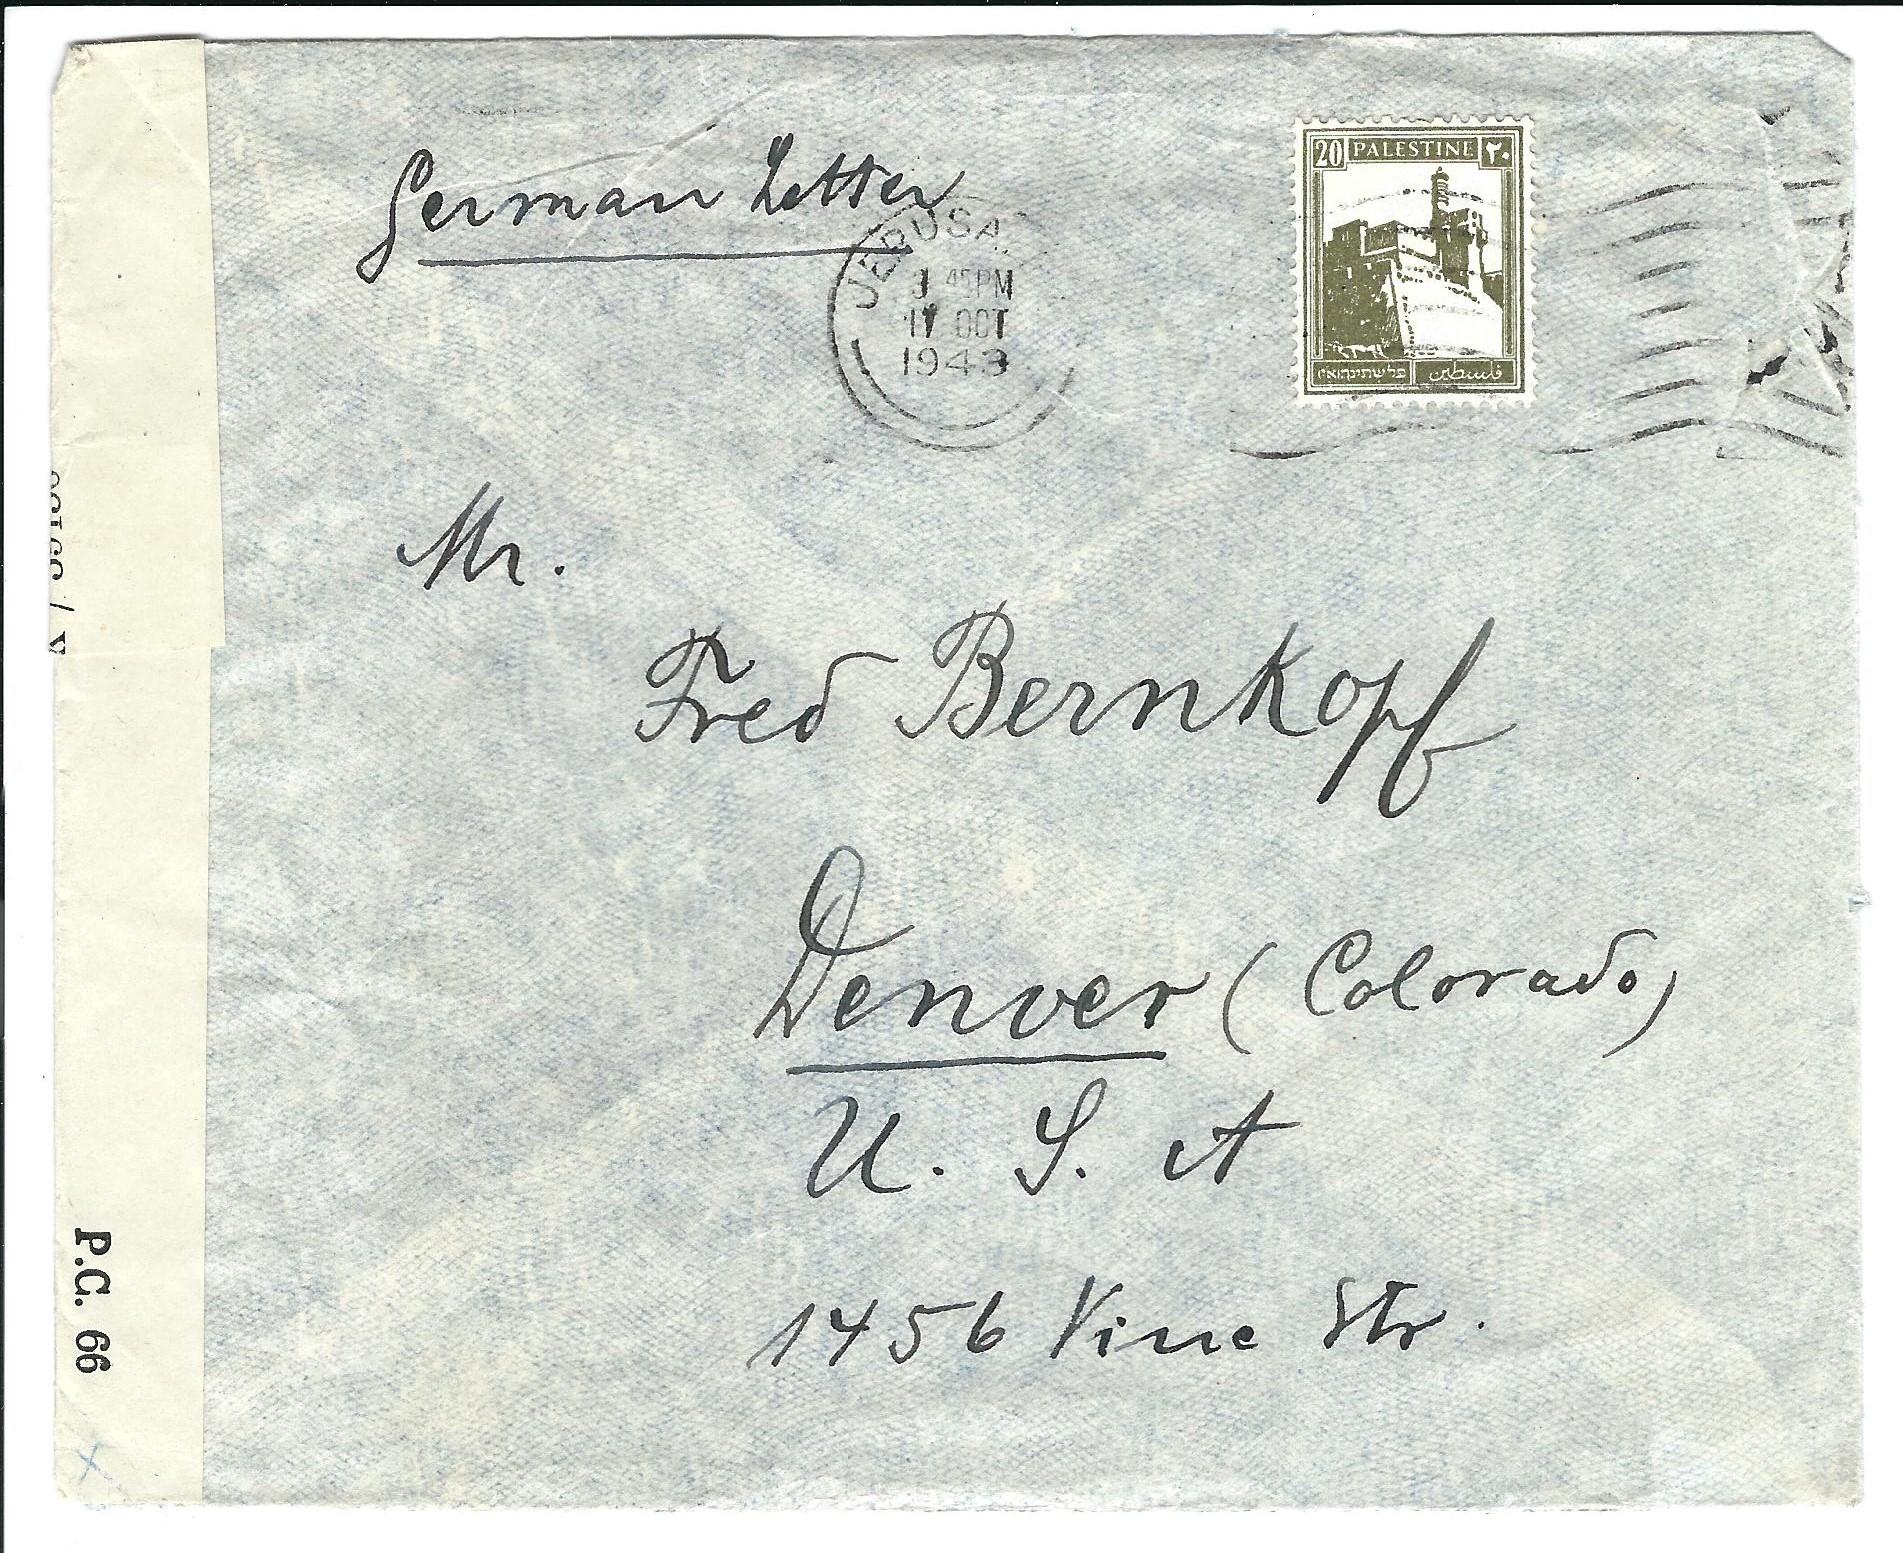 German Letter
20 PALESTINE ٢٠
פלשתינה א״י فلسطين
JERUSA
45 PM
OCT
1943
Mr.
Fred Bernkopf
Denver (Colorado)
U. S. A
1456 Vine Str.
P.C. 66